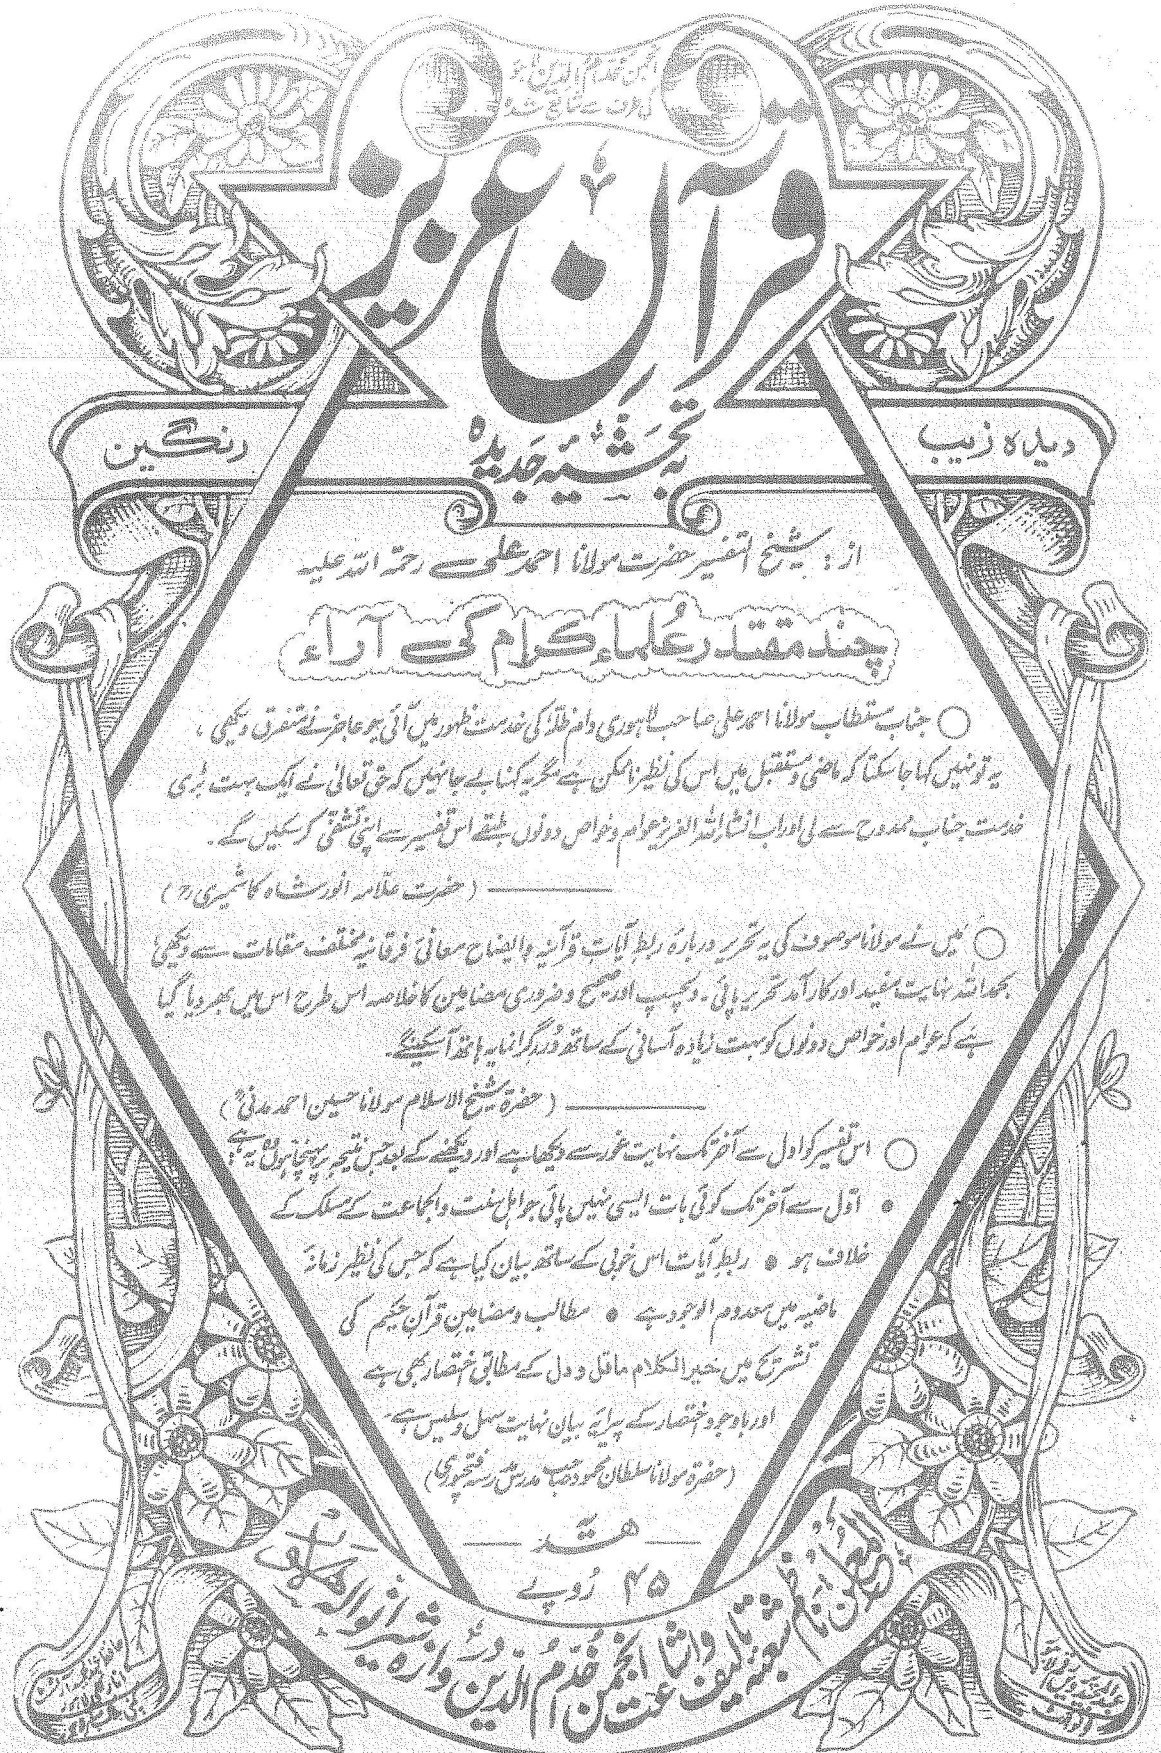 انجمن خدام الدین لاہور
کی طرف سے شائع شدہ
قرآن عزیز
دیدہ زیب
بہ تحشیۂ جدیدہ
رنگین
از: شیخ التفسیر حضرت مولانا احمد علی رحمۃ اللہ علیہ
چند مقتدر علماء کرام کی آراء
جناب مستطاب مولانا احمد علی صاحب لاہوری دام ظلہٗ کی خدمت ظہور میں آئی جو عاجز نے متفرق دیکھی،
یہ تو نہیں کہا جا سکتا کہ ماضی و مستقبل میں اس کی نظیر ناممکن ہے مگر یہ کہنا بے جا نہیں کہ حق تعالیٰ نے ایک بہت بڑی
خدمت جناب ممدوح سے لی اور اب انشاء اللہ العزیز عوام و خواص دونوں طبقے اس تفسیر سے اپنی تشفی کر سکیں گے۔
(حضرت علامہ انور شاہ کاشمیریؒ)
میں نے مولانا موصوف کی یہ تحریر دربارہ ربط آیات قرآنیہ وایضاح معانی فرقانیہ مختلف مقامات سے دیکھی،
بحمد اللہ نہایت مفید اور کارآمد تحریر پائی۔ دلچسپ اور صحیح و ضروری مضامین کا خلاصہ اس طرح اس میں بھر دیا گیا
ہے کہ عوام اور خواص دونوں کو بہت زیادہ آسانی کے ساتھ دُررِ گرانمایہ ہاتھ آسکینگے۔
(حضرۃ شیخ الاسلام مولانا حسین احمد مدنیؒ)
اس تفسیر کو اول سے آخر تک نہایت غور سے دیکھا ہے اور دیکھنے کے بعد جس نتیجہ پر پہنچا ہوں وہ یہ ہے
• اوّل سے آخر تک کوئی بات ایسی نہیں پائی جو اہل سنت والجماعت کے مسلک کے
خلاف ہو • ربط آیات اس خوبی کے ساتھ بیان کیا ہے کہ جس کی نظیر زمانۂ
ماضیہ میں معدوم الوجود ہے • مطالب و مضامین قرآن حکیم کی
تشریح میں خیر الکلام ما قل و دل کے مطابق اختصار بھی ہے
اور باوجود اختصار کے پیرایۂ بیان نہایت سہل و سلیس ہے۔
(حضرۃ مولانا سلطان محمود صاحب مدرس مدرسہ فتحپوری)
ھدیہ
۴۵ رُوپے
المعلن: ناظم شعبۂ تالیف و اشاعت انجمن خدّام الدین دروازہ شیرانوالہ لاہور